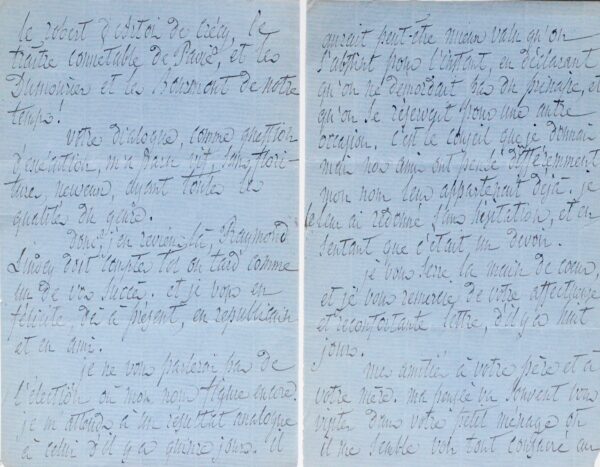 le Robert d'Artois de Crécy, le
traître connétable de Pavie, et les
Dumouriez et les Bourmont de notre
temps!
Votre dialogue, comme question
d'exécution, m'a paru vif, sans
nerveux, ayant toutes les
qualités du genre.
Donc, j'en reviens là, Raymond
Lindey doit compter tôt ou tard comme
un de vos succès. et je vous en
félicite, dès à présent, en républicain
et en ami.
je ne vous parlerai pas de
l'élection où mon nom figure encore.
je m'attends à un résultat analogue
à celui d'il y a quinze jours. il
aurait peut-être mieux valu qu'on
s'abstint pour l'instant, en déclarant
qu'on ne démordait pas du principe, et
qu'on se réservait pour une autre
occasion. c'est le conseil que je donnais
mais nos amis ont pensé différemment
mon nom leur appartenait déjà. je
le leur ai redonné sans hésitation, et en
sentant que c'était un devoir.
je vous serre la main de cœur,
et je vous remercie de votre affectueuse
et réconfortante lettre, d'il y a huit
jours.
mes amitiés à votre père et à
votre mère. ma pensée va souvent vous
visiter dans votre petit ménage où
il me semble voir tout conspire au